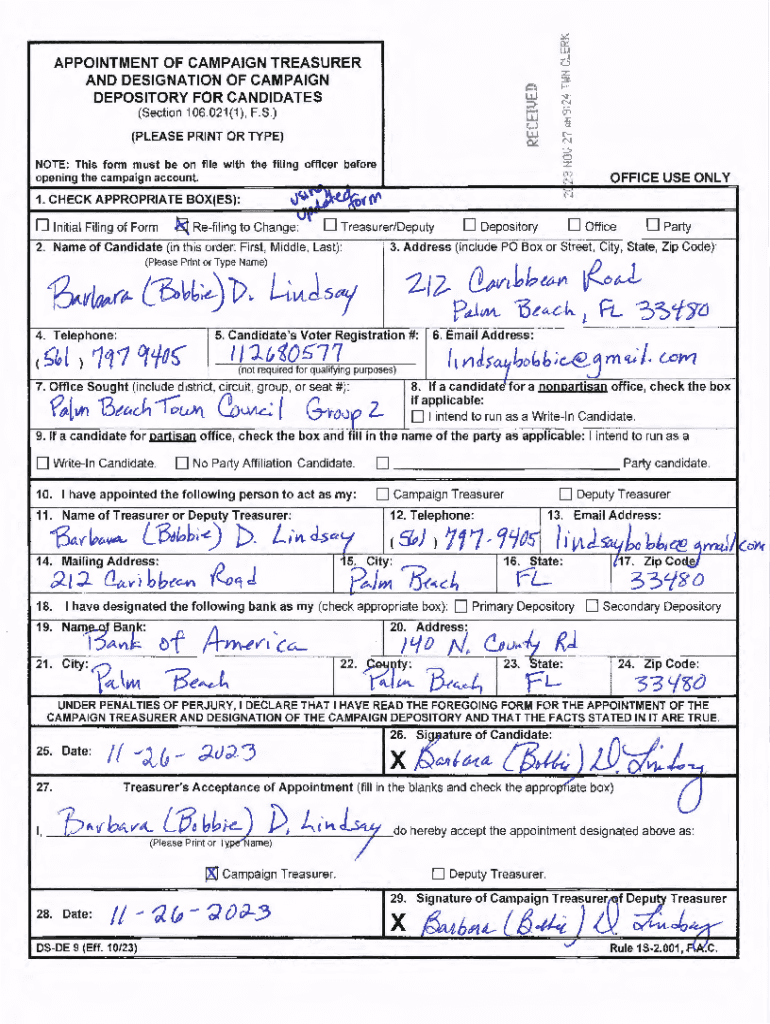 APPOINTMENT OF CAMPAIGN TREASURER
AND DESIGNATION OF CAMPAIGN
DEPOSITORY FOR CANDIDATES
(Section 106.021(1), F.S.)
(PLEASE PRINT OR TYPE)
NOTE: This form must be on file with the filing officer before
opening the campaign account.
RECEIVED
2023 NOV 27 AM 9:24 TWN CLERK
OFFICE USE ONLY
1. CHECK APPROPRIATE BOX(ES):
using
updated form
☐ Initial Filing of Form ☒ Re-filing to Change: ☐ Treasurer/Deputy ☐ Depository ☐ Office ☐ Party
2. Name of Candidate (in this order: First, Middle, Last):
(Please Print or Type Name)
Barbara (Bobbie) D. Lindsay
3. Address (include PO Box or Street, City, State, Zip Code):
212 Caribbean Road
Palm Beach, FL 33480
4. Telephone:
(561) 797 9405
5. Candidate's Voter Registration #:
112680577
(not required for qualifying purposes)
6. Email Address:
lindsaybobbie@gmail.com
7. Office Sought (include district, circuit, group, or seat #):
Palm Beach Town Council Group 2
8. If a candidate for a nonpartisan office, check the box
if applicable:
☐ I intend to run as a Write-In Candidate.
9. If a candidate for partisan office, check the box and fill in the name of the party as applicable: I intend to run as a
☐ Write-In Candidate. ☐ No Party Affiliation Candidate. ☐ Party candidate.
10. I have appointed the following person to act as my: ☐ Campaign Treasurer ☐ Deputy Treasurer
11. Name of Treasurer or Deputy Treasurer:
Barbara (Bobbie) D. Lindsay
12. Telephone:
(561) 797-9405
13. Email Address:
lindsaybobbie@gmail.com
14. Mailing Address:
212 Caribbean Road
15. City:
Palm Beach
16. State:
FL
17. Zip Code:
33480
18. I have designated the following bank as my (check appropriate box): ☐ Primary Depository ☐ Secondary Depository
19. Name of Bank:
Bank of America
20. Address:
140 N. County Rd
21. City:
Palm Beach
22. County:
Palm Beach
23. State:
FL
24. Zip Code:
33480
UNDER PENALTIES OF PERJURY, I DECLARE THAT I HAVE READ THE FOREGOING FORM FOR THE APPOINTMENT OF THE
CAMPAIGN TREASURER AND DESIGNATION OF THE CAMPAIGN DEPOSITORY AND THAT THE FACTS STATED IN IT ARE TRUE.
25. Date: 11-26-2023
26. Signature of Candidate:
X Barbara (Bobbie) D. Lindsay
27. Treasurer's Acceptance of Appointment (fill in the blanks and check the appropriate box)
I, Barbara (Bobbie) D. Lindsay do hereby accept the appointment designated above as:
(Please Print or Type Name)
☒ Campaign Treasurer. ☐ Deputy Treasurer.
28. Date: 11-26-2023
29. Signature of Campaign Treasurer of Deputy Treasurer
X Barbara (Bobbie) D. Lindsay
DS-DE 9 (Eff. 10/23)
Rule 1S-2.001, F.A.C.